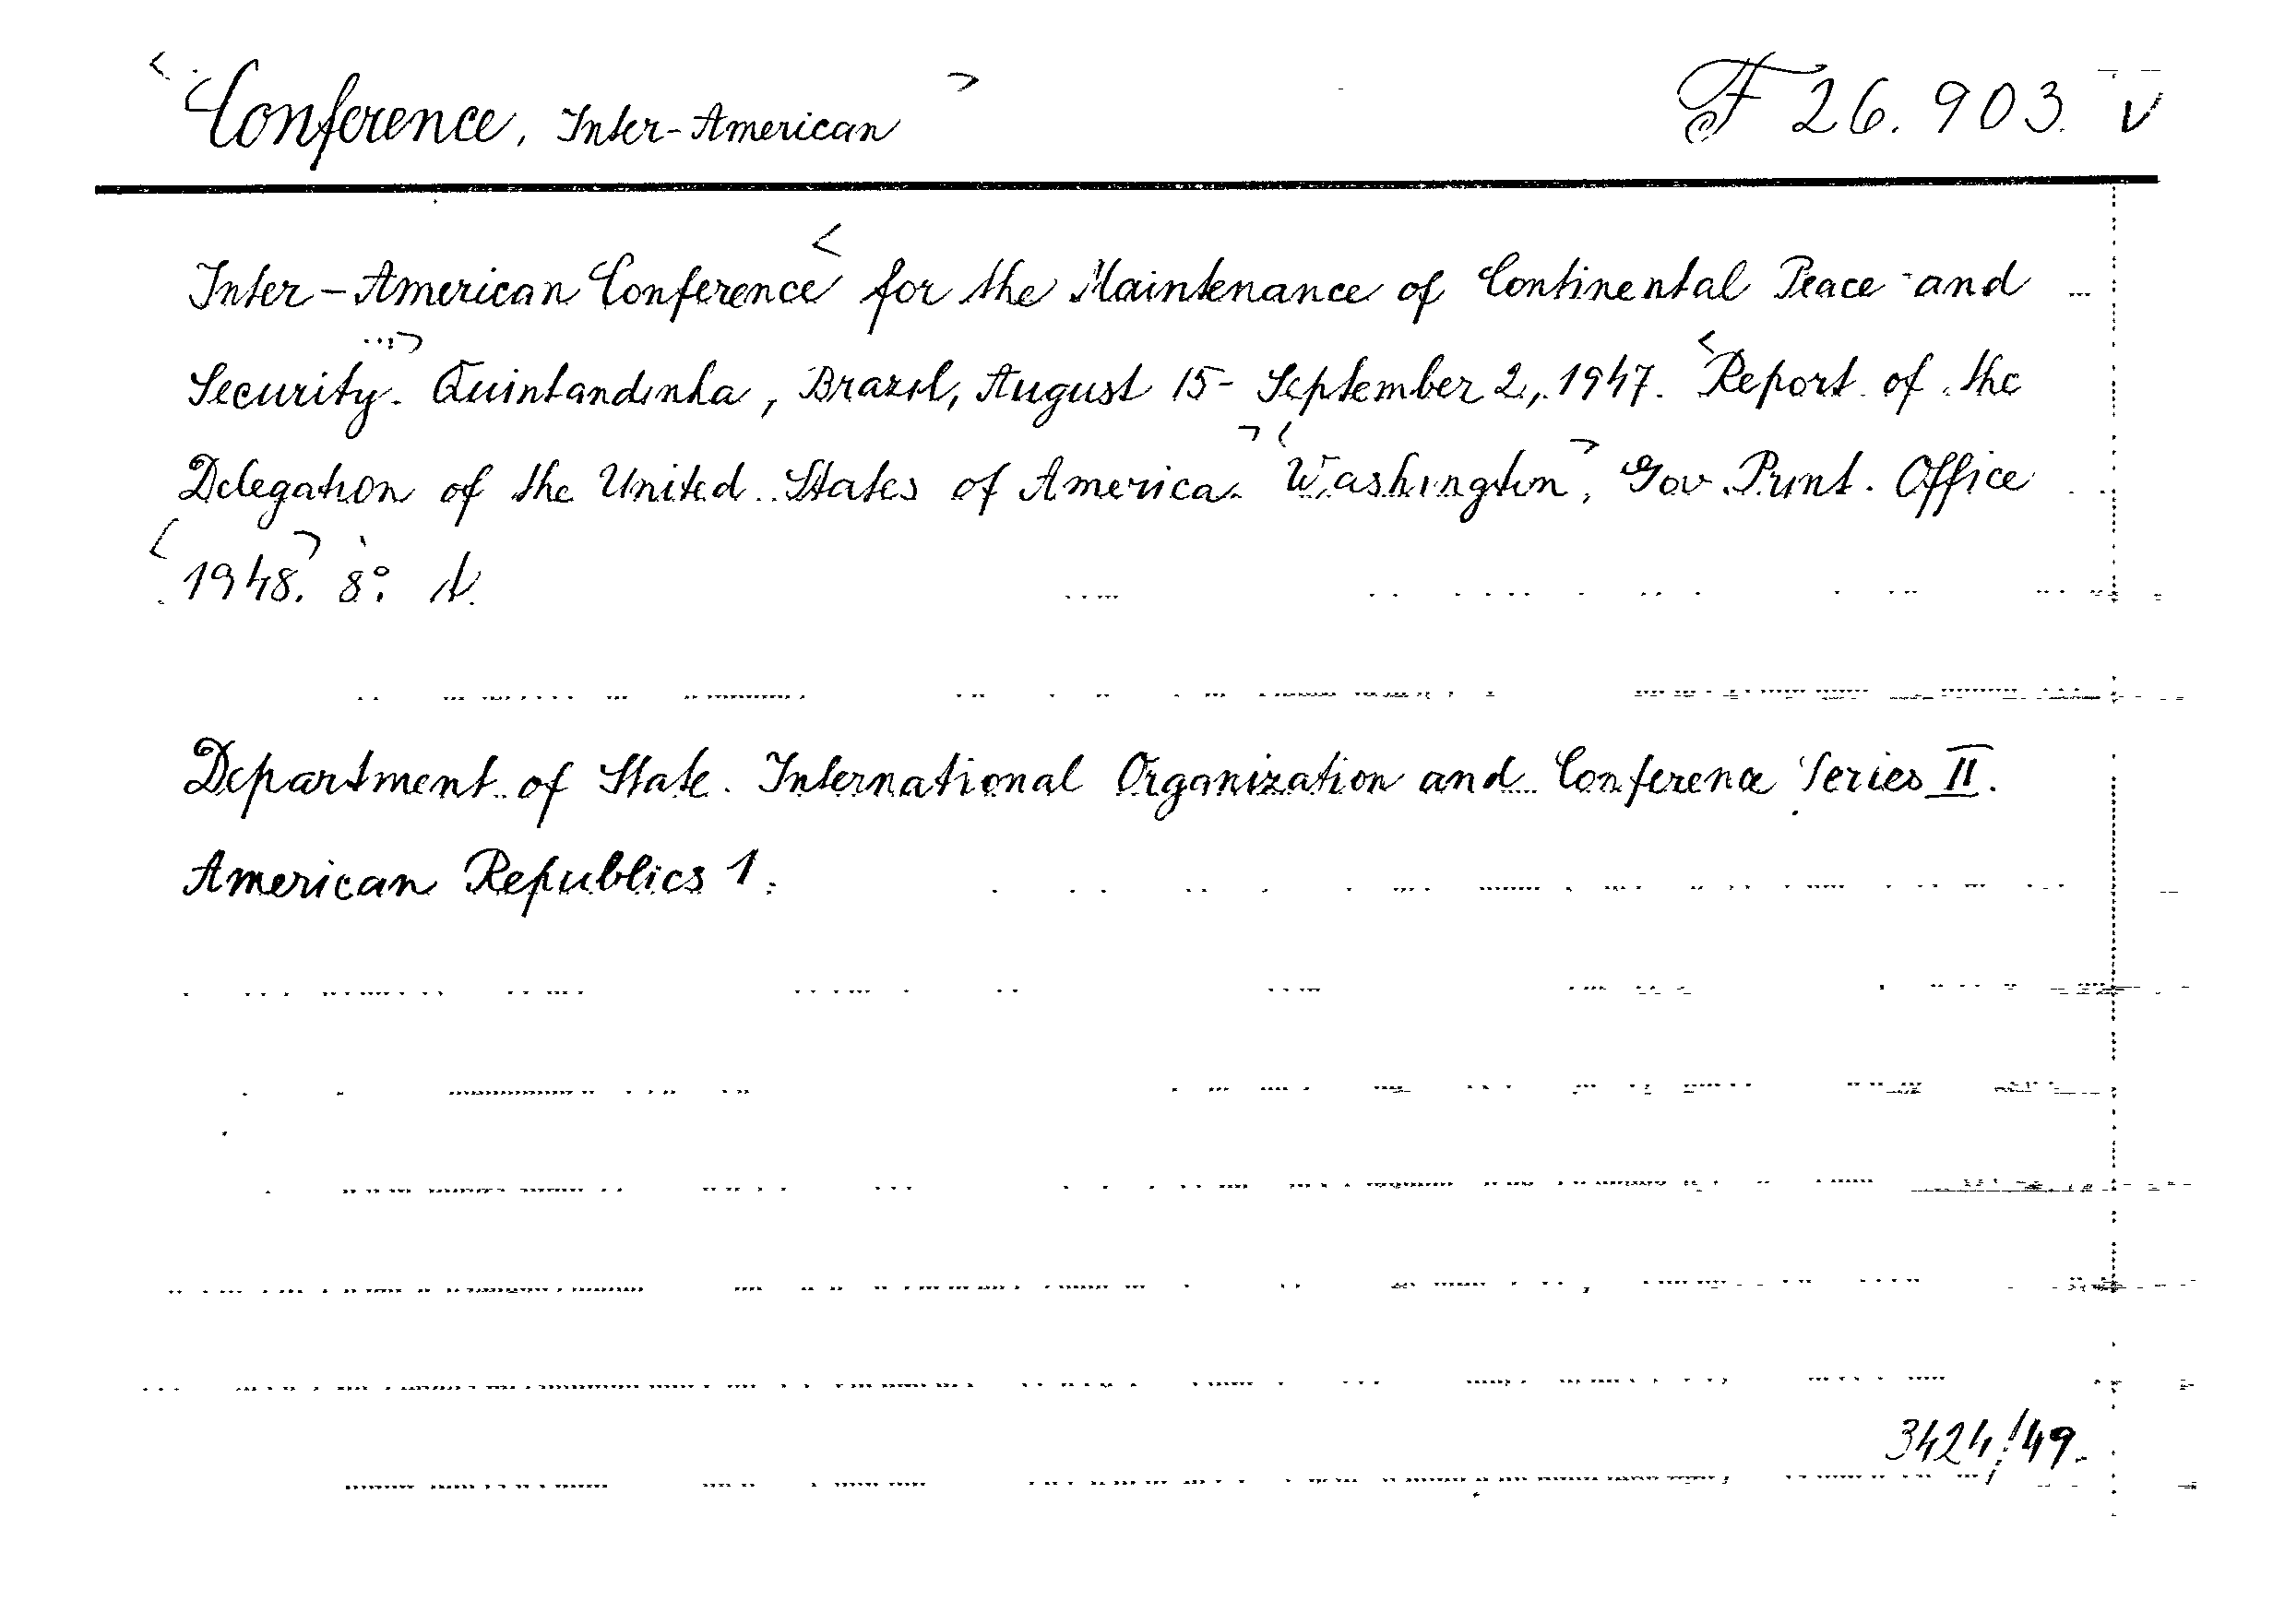 <Conference, Inter-American> F 26.903. v
Inter-American Conference < for the Maintenance of Continental Peace and
Security.> Quintandinha, Brazil, August 15- September 2, 1947. <Report of the
Delegation of the United States of America.> <Washington>, Gov. Print. Office
<1948.> 8°.
Department of State. International Organization and Conference Series II.
American Republics 1.
3424/49.